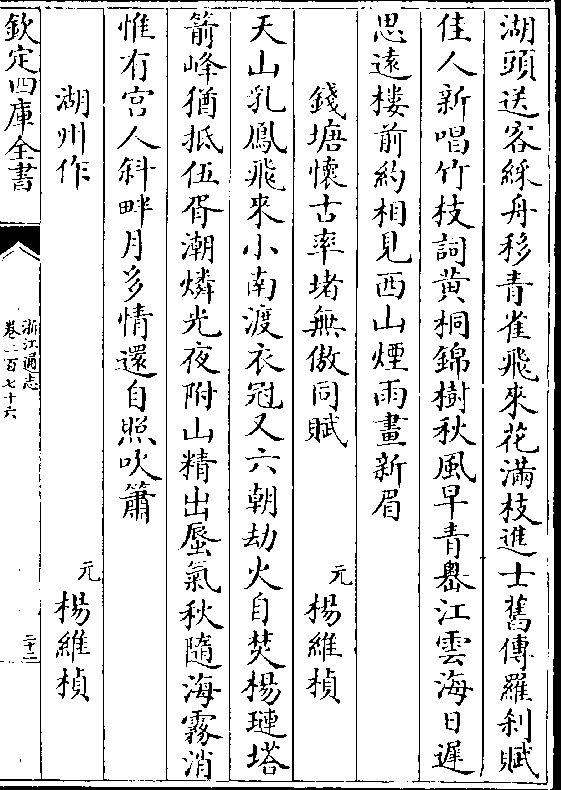 湖頭送客綵舟移青雀飛來花滿枝進士舊傳羅刹賦
佳人新唱竹枝詞黄桐錦樹秋風早青嶴江雲海日遲
思遠樓前約相見西山煙雨畫新眉
錢塘懷古率堵無傲同賦　元　楊維楨
天山乳鳳飛來小南渡衣冠又六朝劫火自焚楊璉塔
箭峰猶抵伍胥潮燐光夜附山精出蜃氣秋隨海霧消
惟有宫人斜畔月多情還自照吹簫
湖州作　元　楊維楨
欽定四庫全書
浙江通志
卷二百七十六
二十二